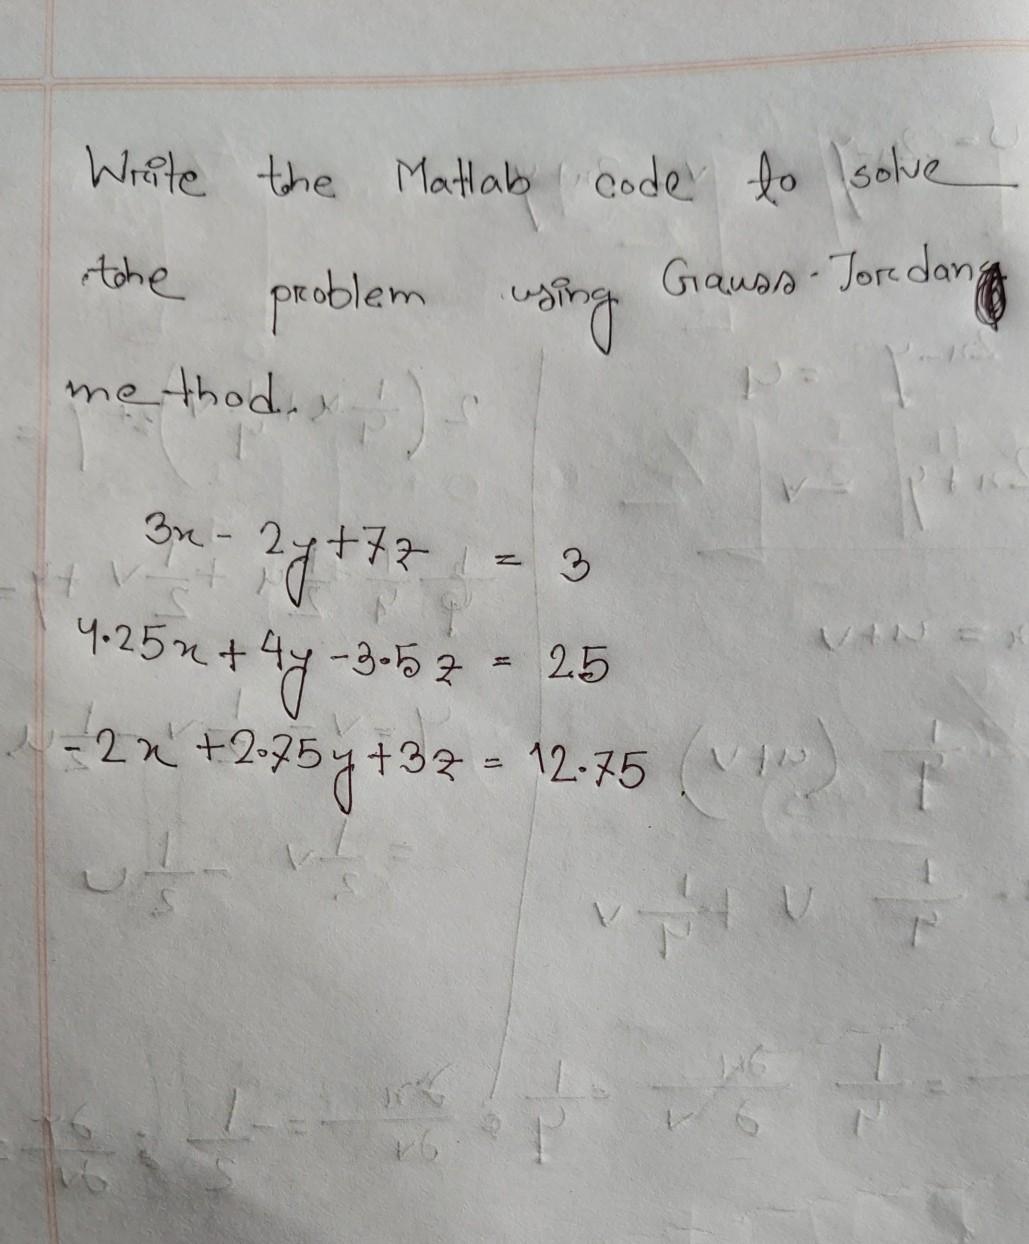 Write the Matlab code to solve
the problem using Gauss-Jordan
method.
3x - 2y + 7z = 3
4.25x + 4y - 3.5z = 25
-2x + 2.75y + 3z = 12.75